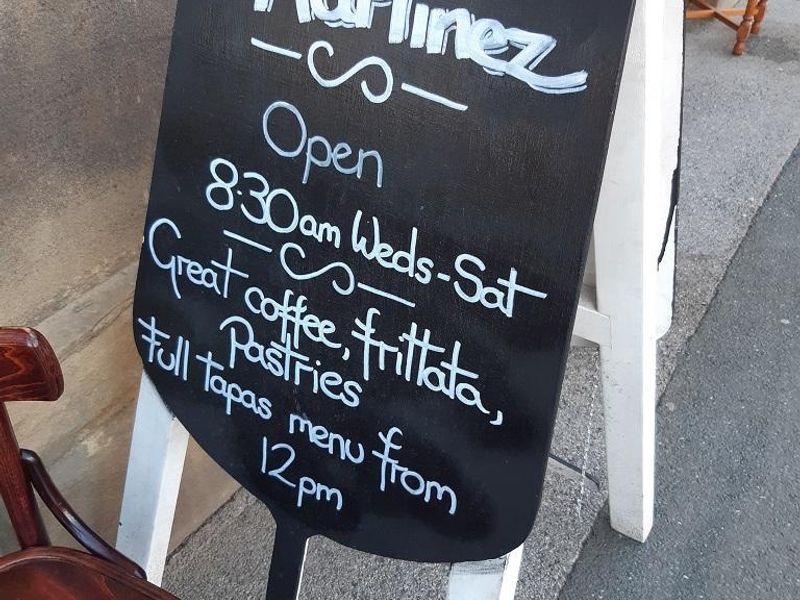 Martinez
Open
8.30am Weds-Sat
Great coffee, frittata,
Pastries
Full tapas menu from
12pm